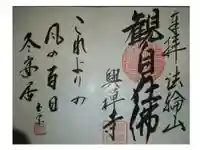 奉拝 法輪山
観自在佛
興禅寺
これよりの
風の百日
冬安居